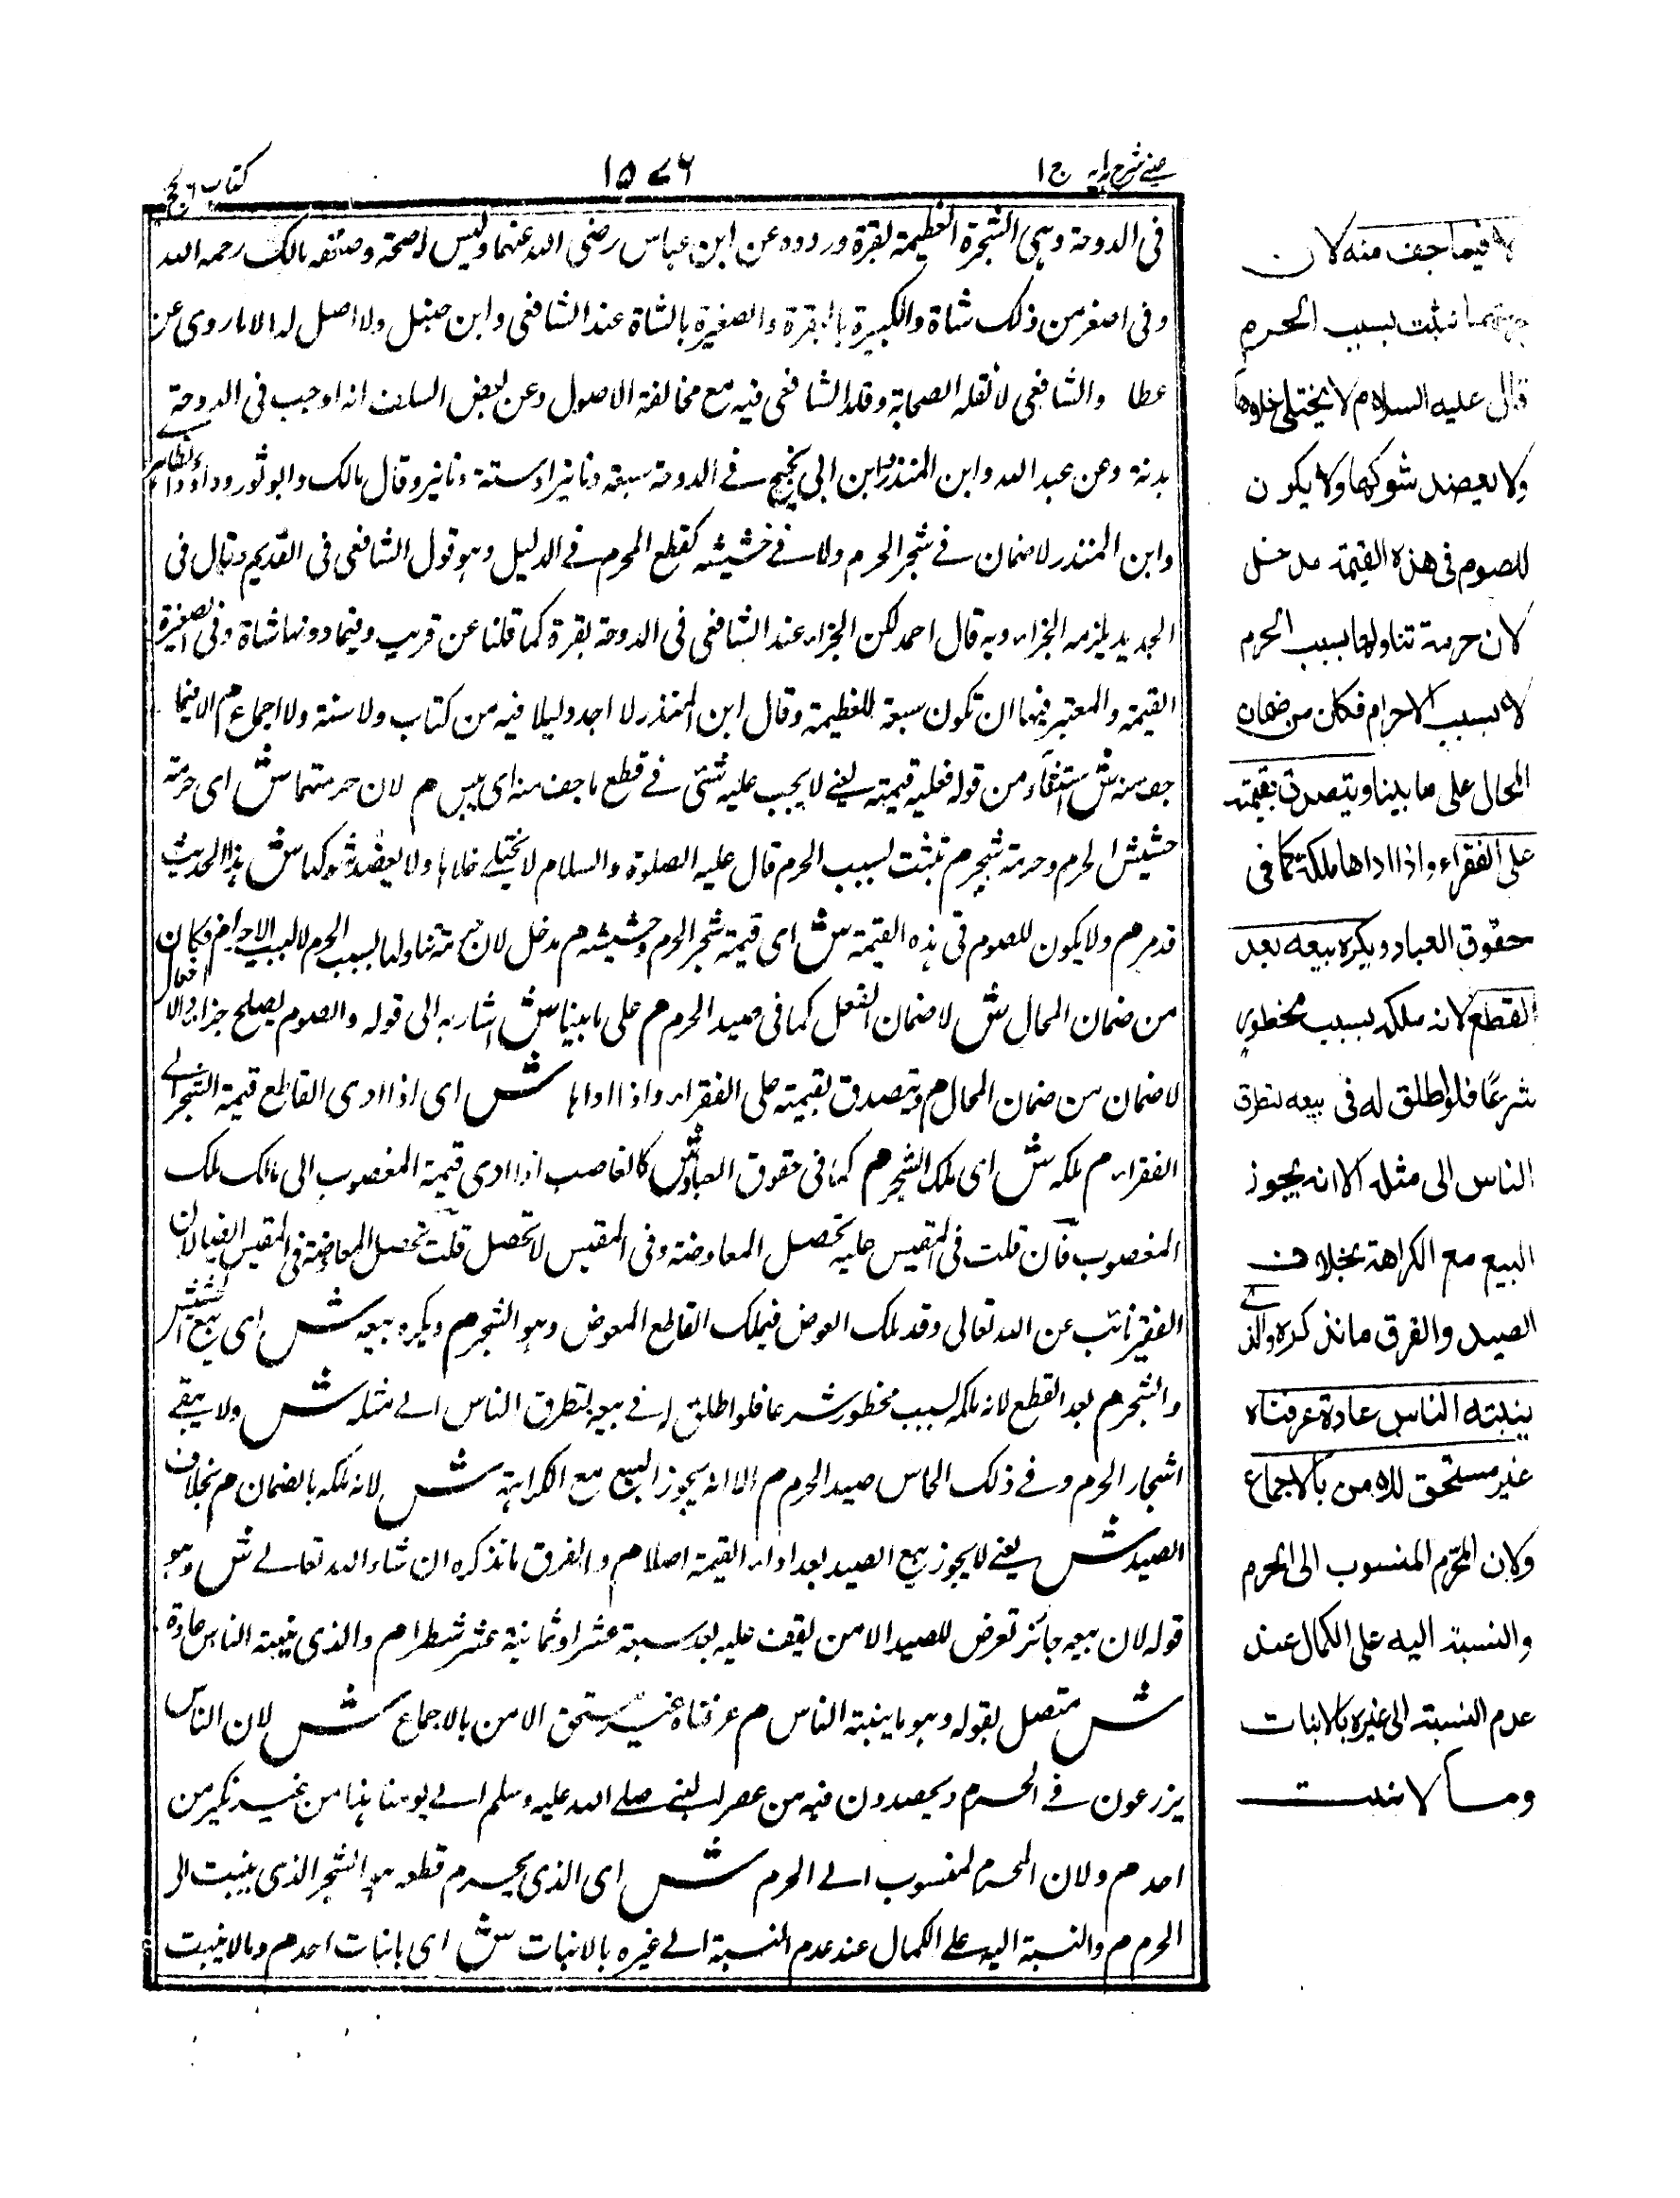 عينى شرح هدايه ج ١
١٥٧٦
كتاب الحج
فى الدوحة وهى الشجرة العظيمة بقرة ورووه عن ابن عباس رضى الله عنهما وليس له صحة وضعفه مالك رحمه الله
وفى اصغر من ذلك شاة والكبيرة بالبقرة والصغيرة بالشاة عند الشافعى وابن حنبل ولا اصل له الا ما روى عن
عطا والشافعى لا نقله الصحابة وقلد الشافعى فيه مع مخالفة الاصول وعن بعض السلف انه اوجب فى الدوحة
بدنة وعن عبد الله وابن المنذر وابن ابى نجيح فى الدوحة سبعة دنانير او ستة دنانير وقال مالك وابو ثور وداود
وابن المنذر لا ضمان فى شجر الحرم ولا فى حشيشه كقطع المحرم فى الدليل وهو قول الشافعى فى القديم وقال فى
الجديد يلزمه الجزاء وبه قال احمد لكن الجزاء عند الشافعى فى الدوحة بقرة كما قلنا عن قريب وفيما دونها شاة وفى الصغيرة
القيمة والمعتبر فيها ان تكون سبعة للعظيمة وقال ابن المنذر لا اجد دليلا فيه من كتاب ولا سنة ولا اجماع م الا فيما
جف منه ش استثناء من قوله فعليه قيمته يعنى لا يجب عليه شئى فى قطع ما جف منه اى يبس م لان حرمتهما ش اى حرمة
حشيش الحرم وحرمة شجره م تثبت بسبب الحرم قال عليه الصلوة والسلام لا يختلى خلاها ولا يعضد شوكها ش هذا الحديث
قد مر م ولا يكون للصوم فى هذه القيمة ش اى قيمة شجر الحرم وحشيشه م مدخل لان حرمة تناولها بسبب الحرم لا بسبب الاحرام فكان
من ضمان المحال ش لا ضمان الفعل كما فى صيد الحرم م على ما بينا ش اشار به الى قوله والصوم يصلح جزاء الافعال
لا ضمان من ضمان المحال م ويتصدق بقيمته على الفقراء واذا اداها ش اى اذا ادى القاطع قيمة الشجر الى
الفقراء م ملكه ش اى ملك الشجر م كما فى حقوق العباد ش كالغاصب اذا ادى قيمة المغصوب الى مالك ملك
المغصوب فان قلت فى المقيس عليه تحصل المعاوضة وفى المقيس لا تحصل قلت تحصل المعاوضة فى المقيس ايضا لان
الفقير نائب عن الله تعالى وقد ملك العوض فيملك القاطع المعوض وهو الشجر م ويكره بيعه ش اى بيع الحشيش
والشجر م بعد القطع لانه ملكه بسبب محظور شرعا فلو اطلق له فى بيعه لتطرق الناس الى مثله ش ولا يبقى
اشجار الحرم وفى ذلك الحاس صيد الحرم م الا انه يجوز البيع مع الكراهة ش لانه ملكه بالضمان م بخلاف
الصيد ش يعنى لا يجوز بيع الصيد بعد اداء القيمة اصلا م والفرق ما نذكره ان شاء الله تعالى ش وهو
قوله لان بيعه جائز تعرض للصيد الامن يقف عليه بعد سبعة عشر او ثمانية عشر شطرا م والذى ينبته الناس عادة
ش متصل بقوله وهو ما ينبته الناس م عرفناه غير مستحق الامن بالاجماع ش لان الناس
يزرعون فى الحرم ويحصدون فيه من عصر النبى صلى الله عليه وسلم الى يومنا هذا من غير نكير من
احد م ولان المحرم المنسوب الى الحرم ش اى الذى يحرم قطعه هو الشجر الذى ينبت الى
الحرم م والنسبة اليه على الكمال عند عدم النسبة الى غيره بالانبات ش اى بانبات احد م وما لا ينبت
لا فيما جف منه لان
حرمتهما تثبت بسبب الحرم
قال عليه السلام لا يختلى خلاوها
ولا يعضد شوكها ولا يكون
للصوم فى هذه القيمة مدخل
لان حرمة تناولها بسبب الحرم
لا بسبب الاحرام فكان من ضمان
المحال على ما بينا ويتصدق بقيمته
على الفقراء واذا اداها ملكه كما فى
حقوق العباد ويكره بيعه بعد
القطع لانه ملكه بسبب محظور
شرعًا فلو اطلق له فى بيعه لتطرق
الناس الى مثله الا انه يجوز
البيع مع الكراهة بخلاف
الصيد والفرق ما نذكره والذى
ينبته الناس عادة عرفناه
غير مستحق للامن بالاجماع
ولان المحرم المنسوب الى الحرم
والنسبة اليه على الكمال عند
عدم النسبة الى غيره بالانبات
وما لا ينبت